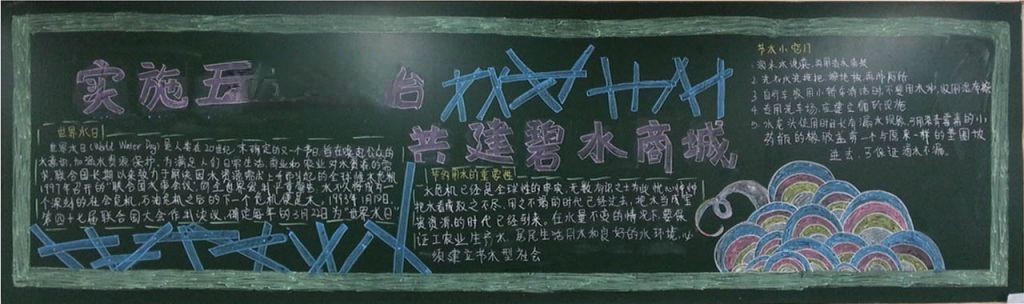 实施五 台
共建碧水商城
世界水日
世界水日(World Water Day)是人类在20世纪末确定的又一个节日。旨在唤起公众的
水意识,加强水资源保护。为满足人们日常生活、商业和农业对水资源的需
求,联合国长期以来致力于解决因水资源需求上升而引起的全球性水危机
1977年召开的"联合国水事会议",向全世界发出严重警告:水不久将成为一
个深刻的社会危机,石油危机之后的下一个危机便是水。1993年1月18日,
第四十七届联合国大会作出决议,确定每年的3月22日为"世界水日"。
节约用水的重要性
水危机已经是全球性的事故,无数有识之士为此忧心忡忡
把水看成取之不尽、用之不竭的时代已经过去,把水当成宝
贵资源的时代已经到来。在水量不变的情况下,要保
证工农业生产水、居民生活用水和良好的水环境,必
须建立节水型社会
节水小窍门
1.
2.洗
3.自行车、家用小轿车清洁时,不要用水冲,
4.洗车场,应建立循环设施
5.水龙头使用时间长有漏水现象,可用装青霉素的小
药瓶的橡胶盖剪一个与原来一样的垫圈放
进去,可保证滴水不漏。